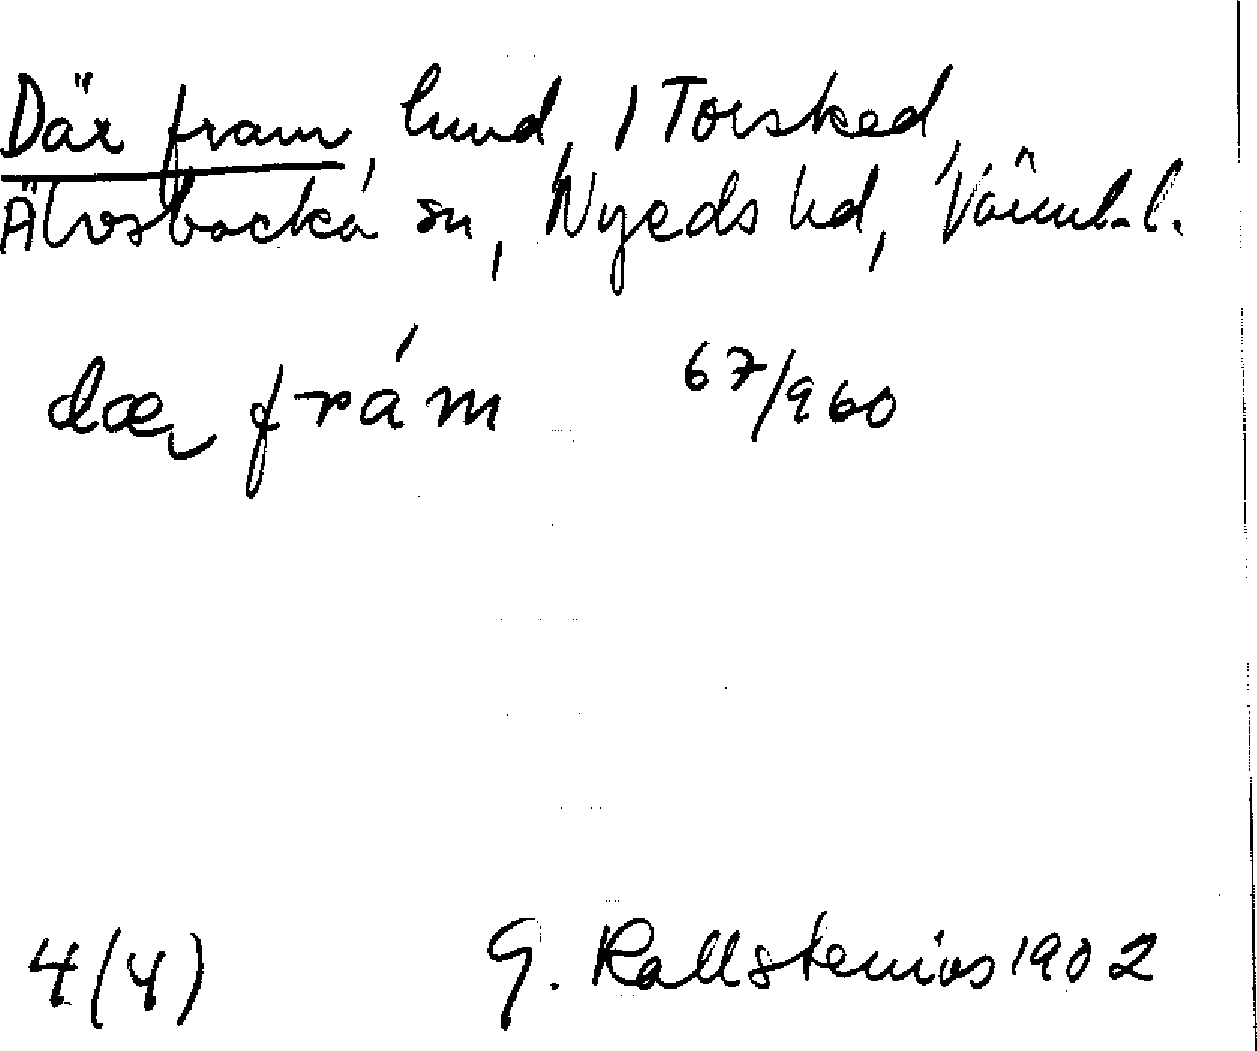 Där fram, lund, i Torsked,
Älvsbacka sn, Nyeds hd, Värml. l.
dær frám 67/960
4(4) G. Kallstenius 1902